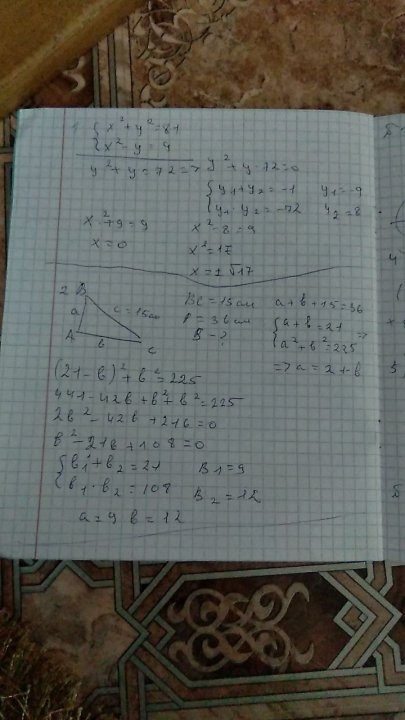 1 { x² + y² = 81
{ x² - y = 9
y² + y = 72 => y² + y - 72 = 0
{ y₁ + y₂ = -1 y₁ = -9
{ y₁ · y₂ = -72 y₂ = 8
x² + 9 = 9 x² - 8 = 9
x = 0 x² = 17
x = ± √17
2 B
a c = 15см
A b C
BC = 15 см a + b + 15 = 36
P = 36 см { a + b = 21
В - ? { a² + b² = 225 =>
=> a = 21 - b
(21 - b)² + b² = 225
441 - 42b + b² + b² = 225
2b² - 42b + 216 = 0
b² - 21b + 108 = 0
{ b₁ + b₂ = 21 B₁ = 9
{ b₁ · b₂ = 108 B₂ = 12
a = 9 b = 12